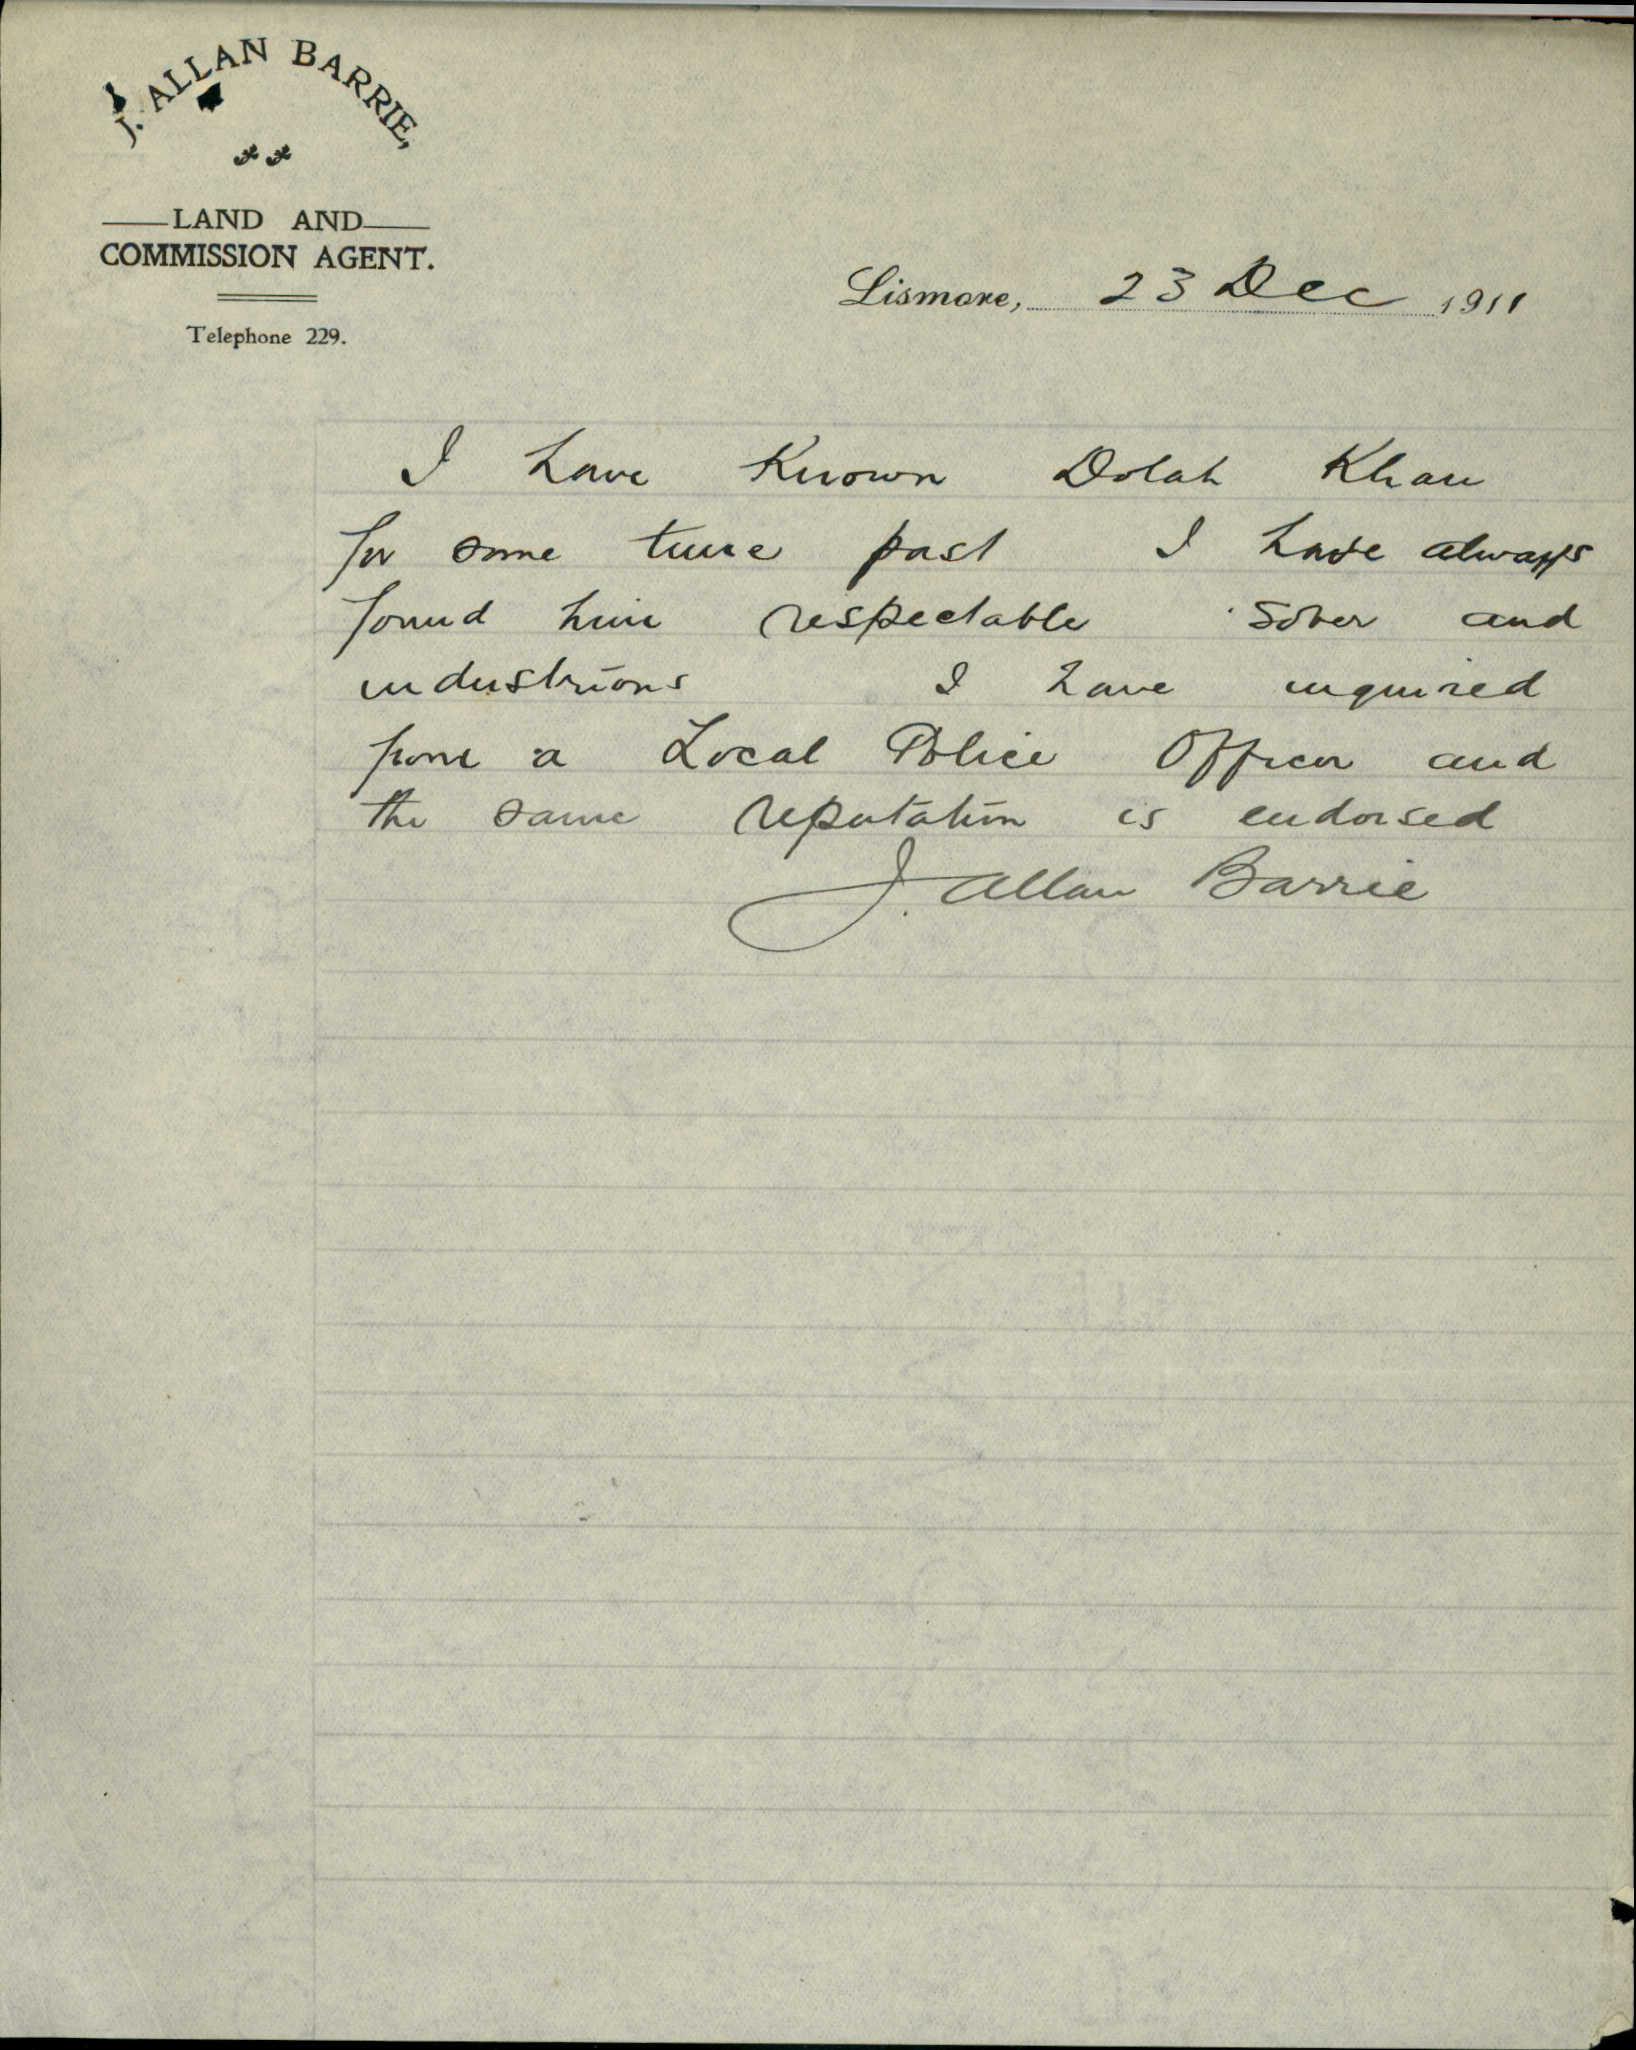 J. ALLAN BARRIE,
LAND AND
COMMISSION AGENT.
Telephone 229.
Lismore, 23 Dec 1911
I have Known Dolah Khan
for some time past I have always
found him respectable sober and
industrious I have inquired
from a Local Police Officer and
the same reputation is endorsed
J. Allan Barrie